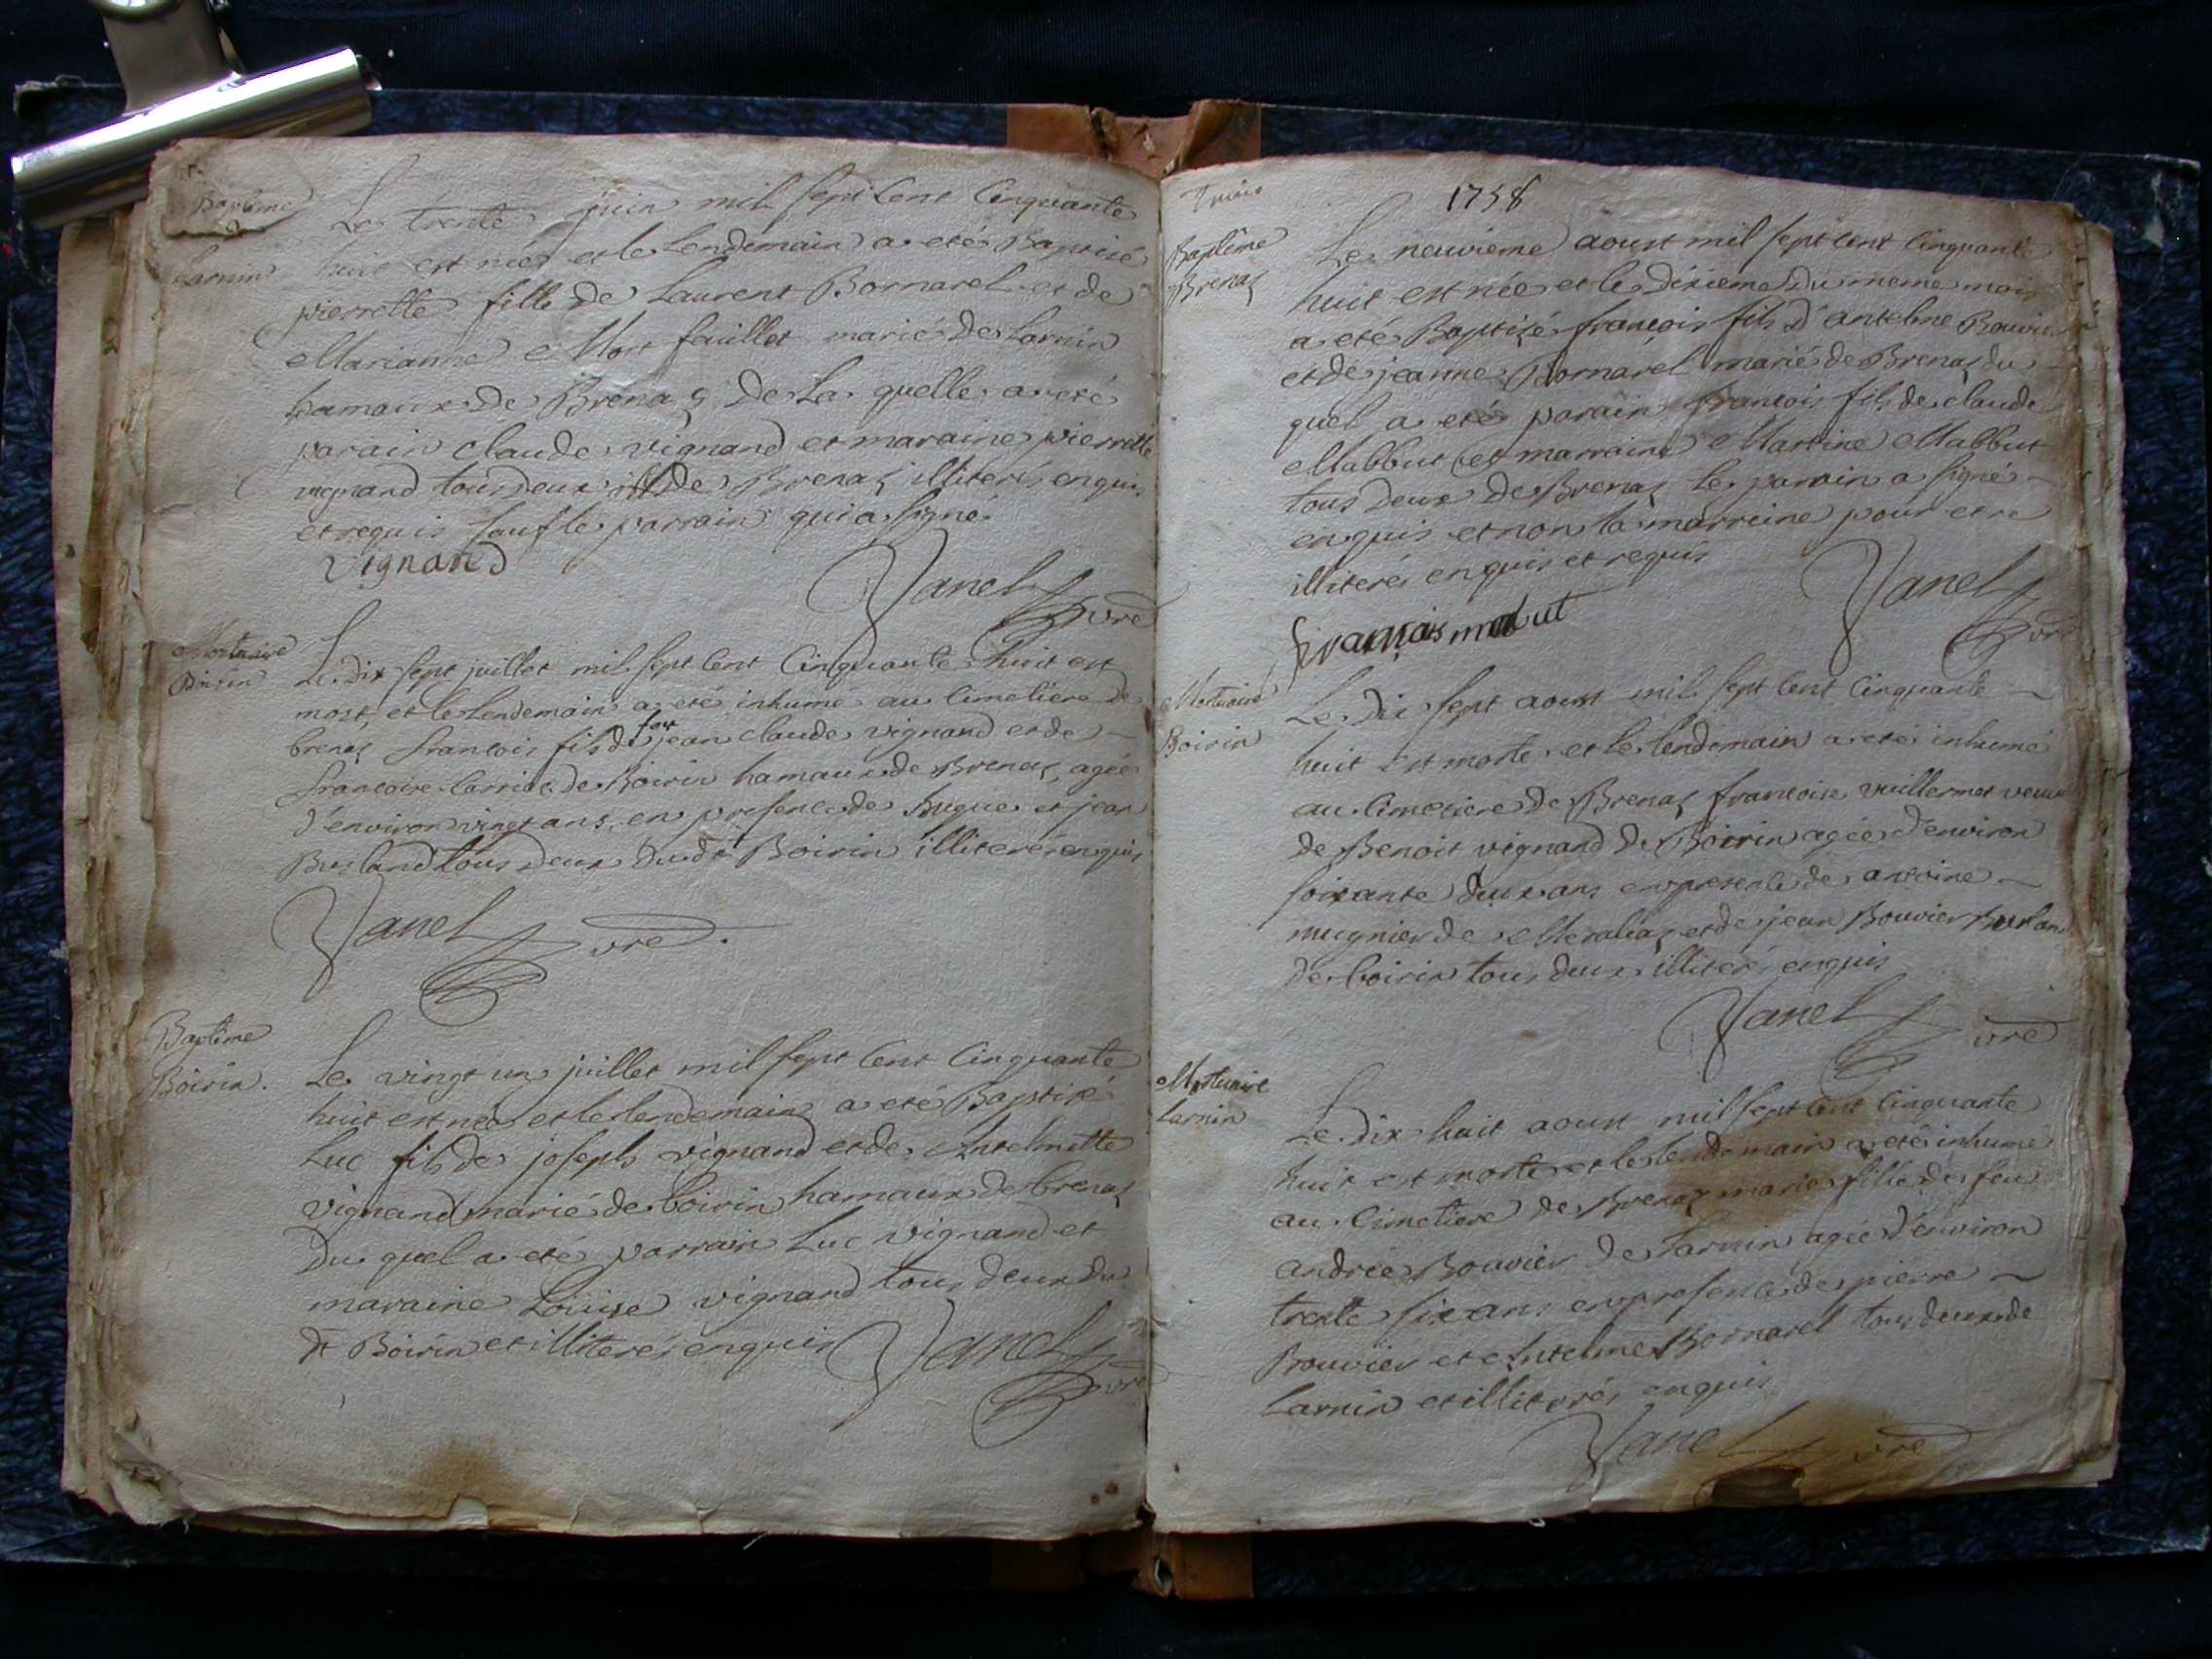 Baptême
Larnin
Le trente juin mil sept cent cinquante
huit est née et le lendemain a eté Baptisé
pierrette fille de Laurent Bornarel et de
Marianne Mort faillet marié de Larnin
hamaux de Brenaz De La quelle a eté
parain claude vignand et maraine pierrette
vignand tous deux de Brenaz illiterés enquis
et requis sauf le parrain qui a signé
vignand
Janel vre
Mortuaire
Boirin
Le dix sept juillet mil sept cent cinquante huit est
mort, et le lendemain a eté inhumé au cimetiere de
brenaz francois fils de feu jean claude vignand et de
francoise de Boirin hamaux de Brenaz, agée
d'environ vingt ans, en presence de hugue et jean
Burland tous deux du dt Boirin illiterés enquis
Janel vre.
Baptême
Boirin.
Le vingt un juillet mil sept cent cinquante
huit est né et le lendemain a eté Baptisé
Luc fils de joseph vignand et de Antelmette
vignand marié de boirin hamaux de brenaz
Du quel a eté parrain Luc vignand et
maraine Louise vignand tous deux du
dt Boirin et illiterés enquis
Janel vre
1758
Baptême
Brenaz
Le neuvieme aoust mil sept cent cinquante
huit est née et le dixieme du meme mois
a eté Baptizé francois fils d'antelme Bouvier
et de jeanne Bornarel marié de Brenaz du
quel a eté parain francois fils de claude
Mabbut et marraine Martine Mabbut
tous deux de Brenaz le parain a signé
enquis et non la marreine pour etre
illiteré enquis et requis
francois mabut
Janel vre
Mortuaire
Boirin
Le Dix sept aoust mil sept cent cinquante
huit est morte et le lendemain a eté inhumé
au cimetiere de Brenaz francoise vuillermet veuve
de Benoit vignand de Boirin agée d'environ
soixante deux ans en presence de antoine
mugnier de et de jean Bouvier Burland
de boirin tous deux illiterés enquis
Janel vre
Mortuaire
Larnin
Le dix huit aoust mil sept cent cinquante
huit est morte et le lendemain a eté inhumé
au cimetiere de Brenaz marie fille de feu
andrée Bouvier de Larnin agée d'environ
trente six ans en presence de pierre
Bouvier et Antelme Bornarel tous deux de
Larnin et illiterés enquis
Janel vre